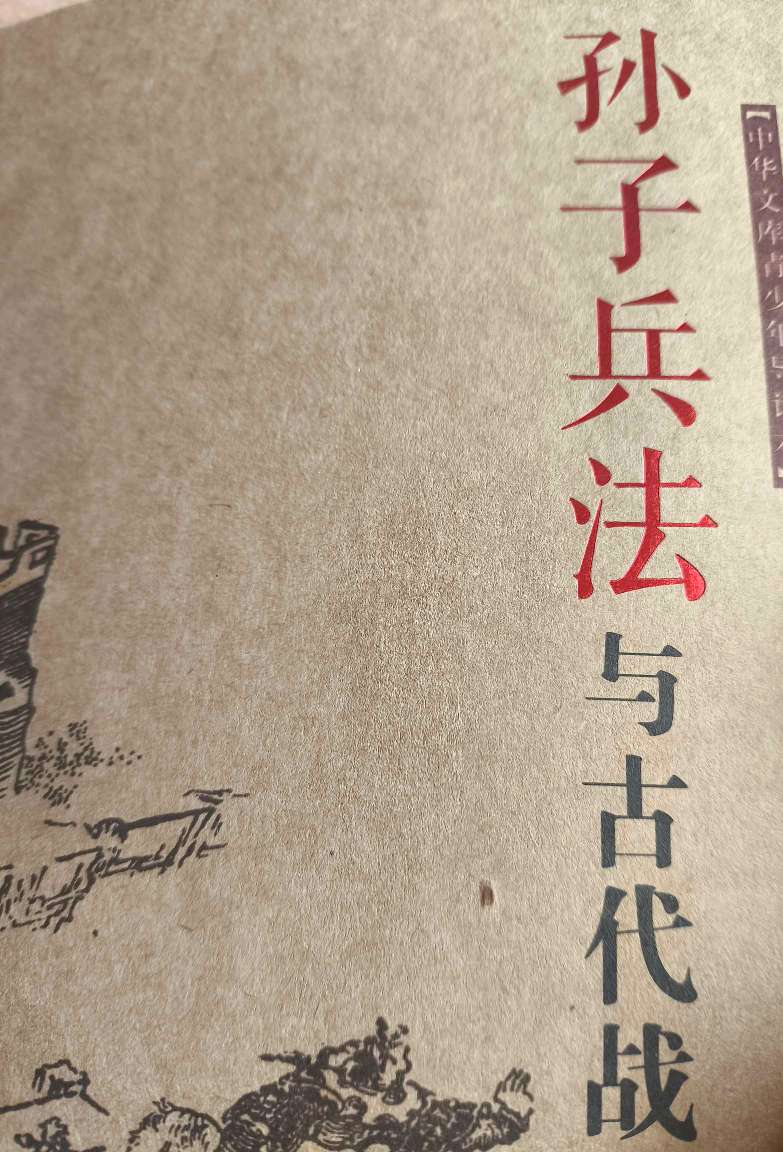 【中华文库青少年导读本】
孙子兵法与古代战